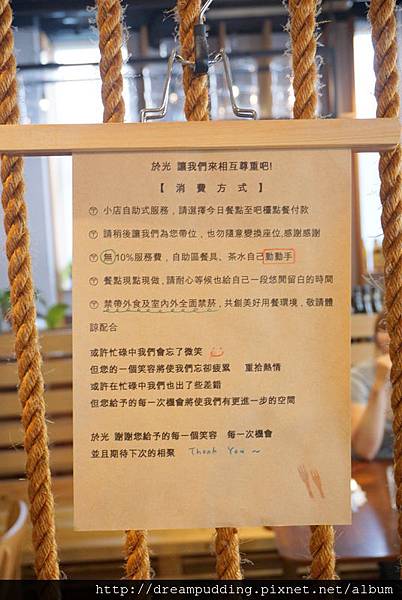 於光 讓我們來相互尊重吧!
【 消 費 方 式 】
小店自助式服務，請選擇今日餐點至吧檯點餐付款
請稍後讓我們為您帶位，也勿隨意變換座位,感謝感謝
無10%服務費，自助區餐具、茶水自己動動手
餐點現點現做，請耐心等候也給自己一段悠閒留白的時間
禁帶外食及室內外全面禁菸，共創美好用餐環境，敬請體
諒配合
或許忙碌中我們會忘了微笑
但您的一個笑容將使我們忘卻疲累 重拾熱情
或許在忙碌中我們也出了些差錯
但您給予的每一次機會將使我們有更進一步的空間
於光 謝謝您給予的每一個笑容 每一次機會
並且期待下次的相聚 Thank You ~
http://dreampudding.pixnet.net/album